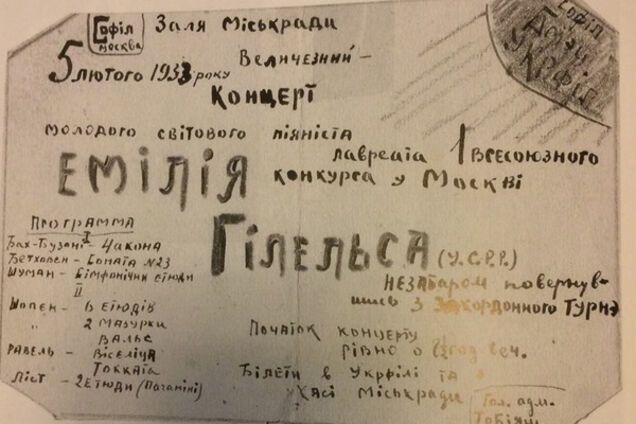 Софіл
Москва
Заля Міськради
5 лютого 1933 року
Величезний -
Концерт
молодого світового піяніста
лавреата 1 Всесоюзного
конкурса у Москві
Емілія
Гілельса (У.С.Р.Р.)
незабаром повернув-
шись з закордонного турнэ
Программа
I
Бах-Бузоні - Чакона
Бетховен - Соната №23
Шуман - Сімфонічни етюди
II
Шопен - 6 етюдів
" 2 мазурки
Вальс
Равель - Віселіца
Токката
Ліст - 2 етюди (Паганіні)
Початок концерту
рівно о год веч.
Білети в Укрфілі та
касі Міськради
Гол. адм.
Тобіяш
Софіл
Укрфіл